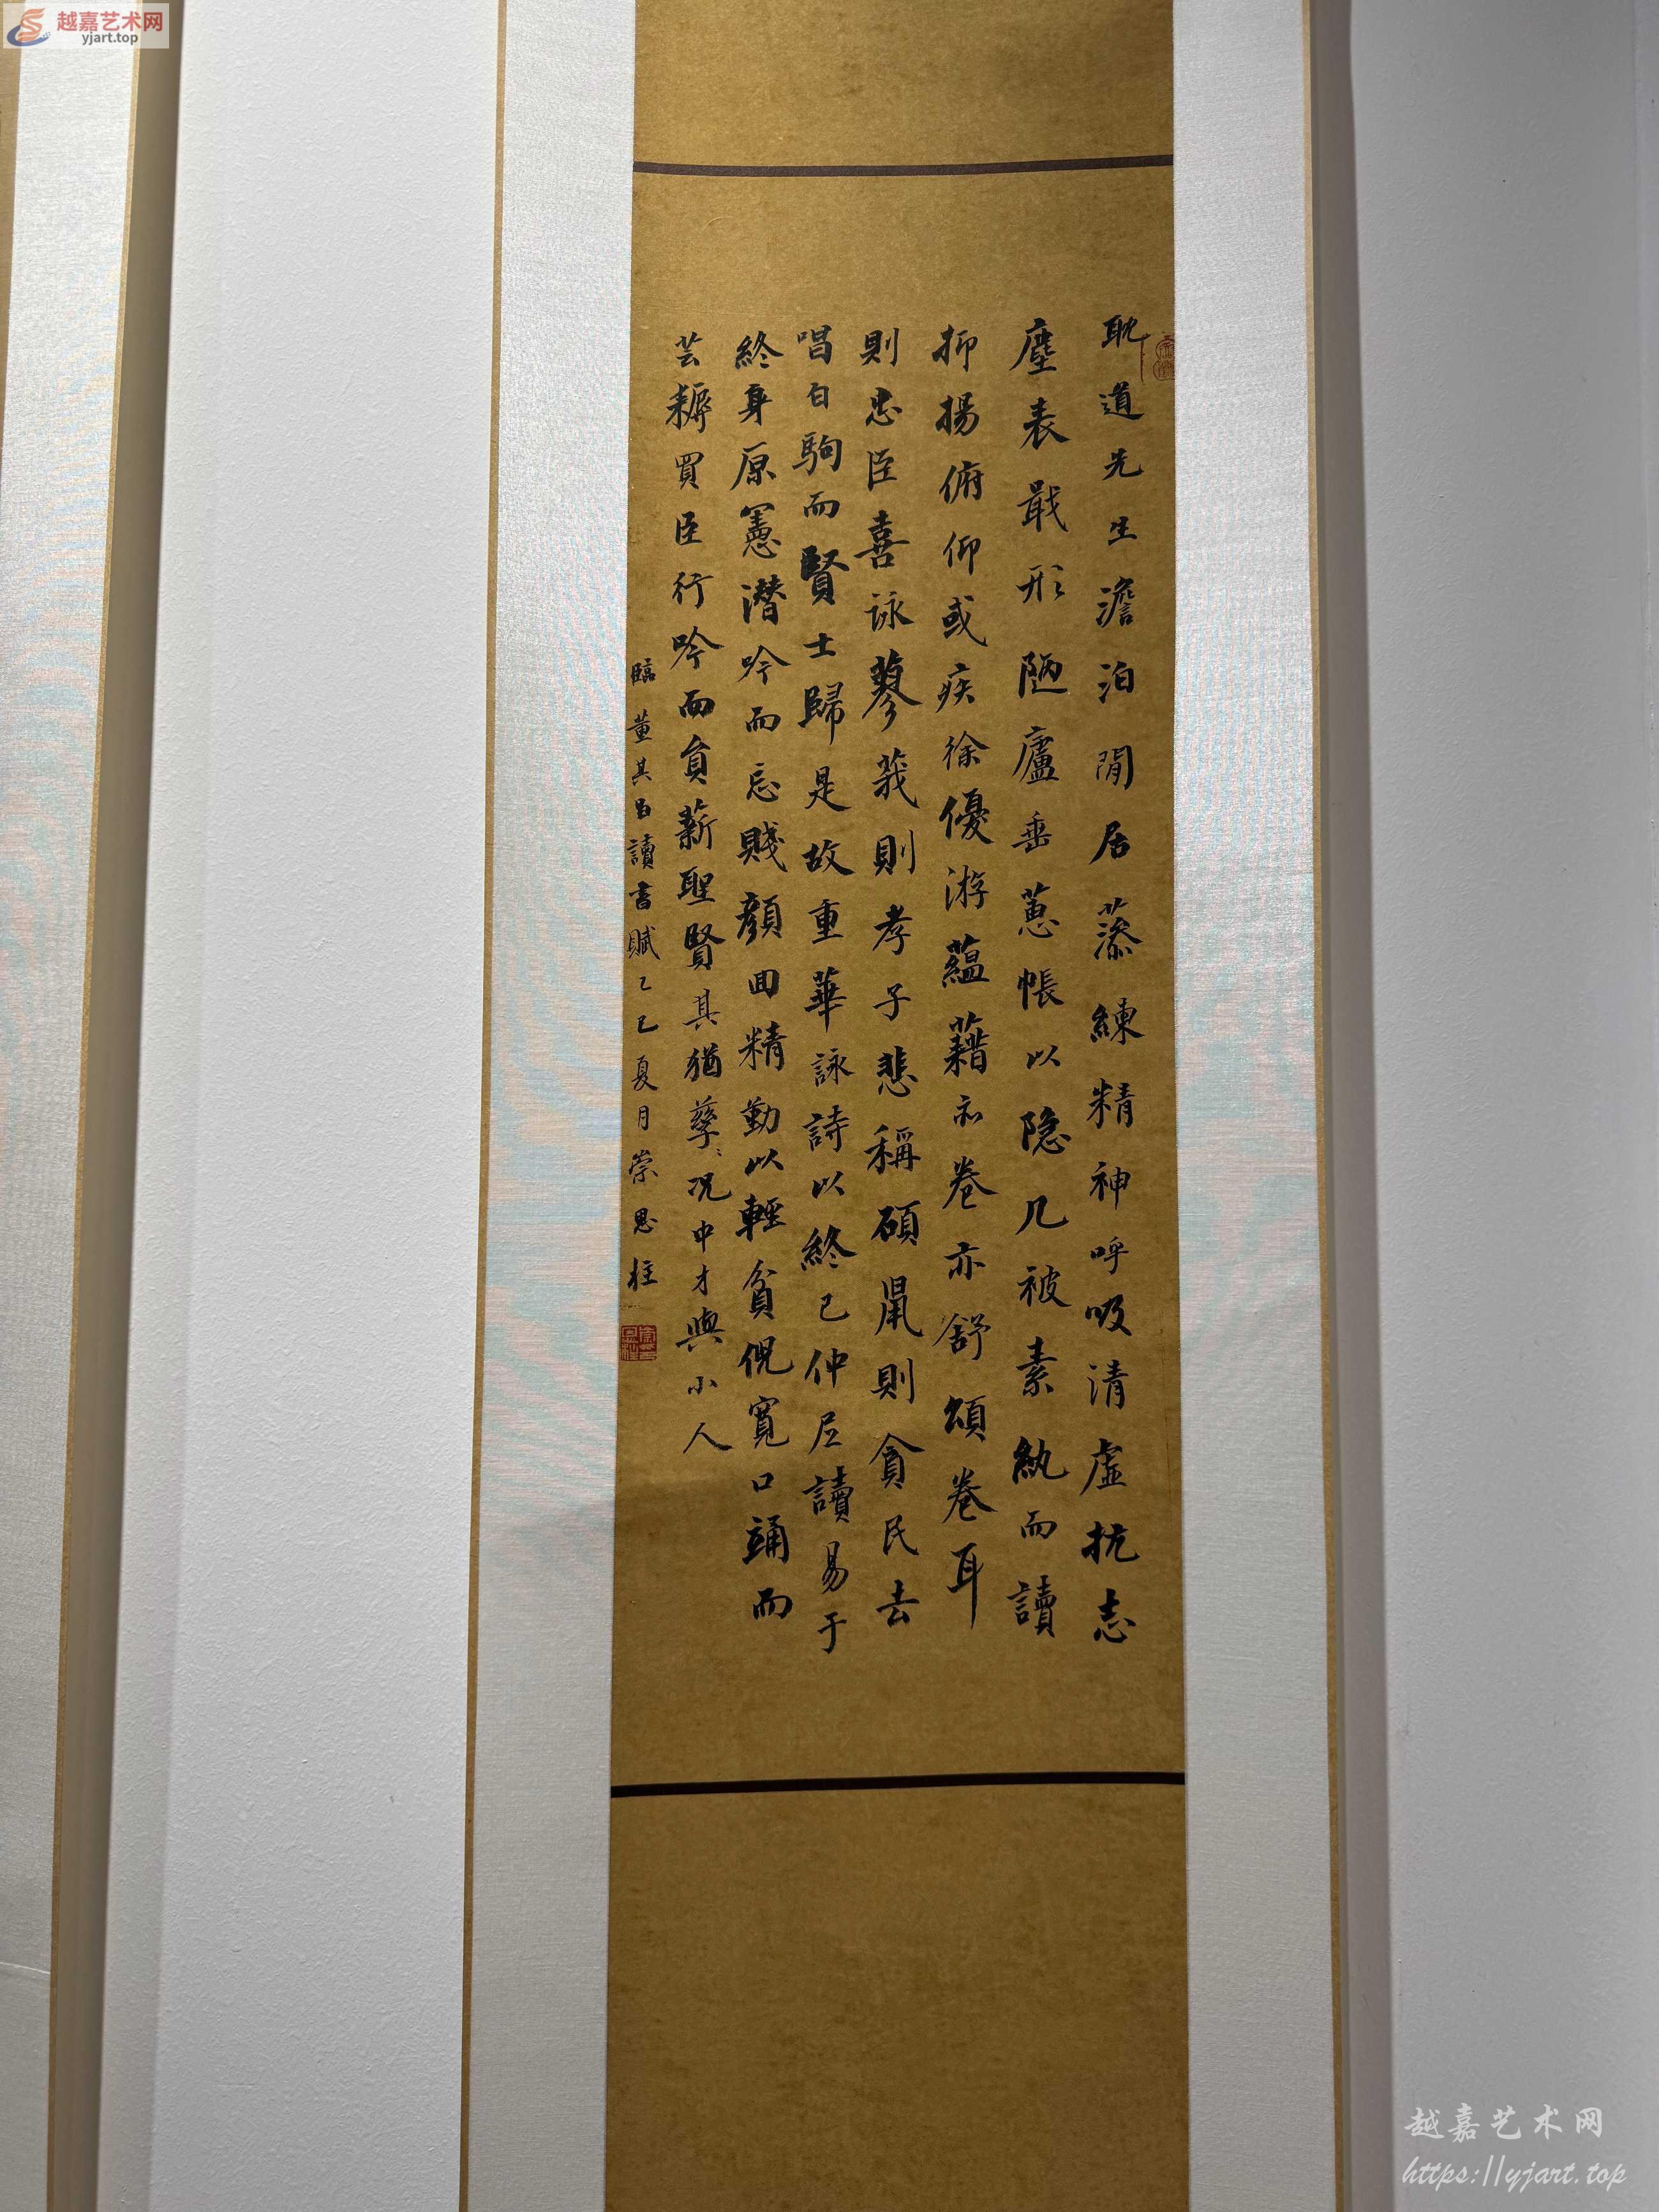 越嘉艺术网
yjart.top
耽道先生澹泊閒居藻練精神呼吸清虛抗志
塵表戢形陋廬垂蔥帳以隐几被素紈而讀
抑揚俯仰或疾徐優游蘊藉亦卷亦舒頌卷耳
則忠臣喜詠蓼莪則孝子悲稱碩鼠則貪民去
唱白駒而賢士歸是故重華詠詩以終已仲尼讀易于
終身原憲潜吟而忘賤顏回精勤以輕貧倪寬口誦而
芸耨買臣行吟而負薪聖賢其猶孳〻况中才與小人
臨董其昌讀書賦乙巳夏月崇思柱
越嘉艺术网
https://yjart.top